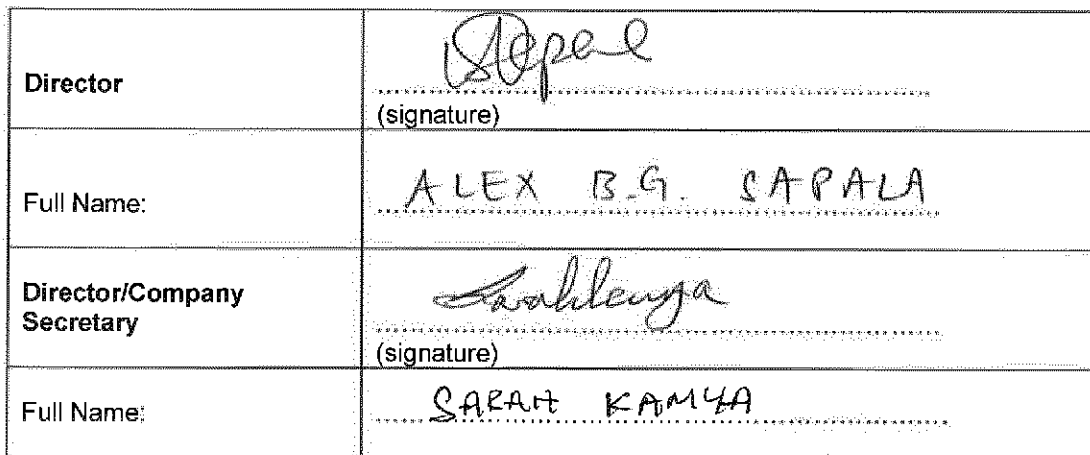 Director
(signature)
Full Name: ALEX B.G. SAPALA
Director/Company
Secretary
(signature)
Full Name: SARAH KAMYA